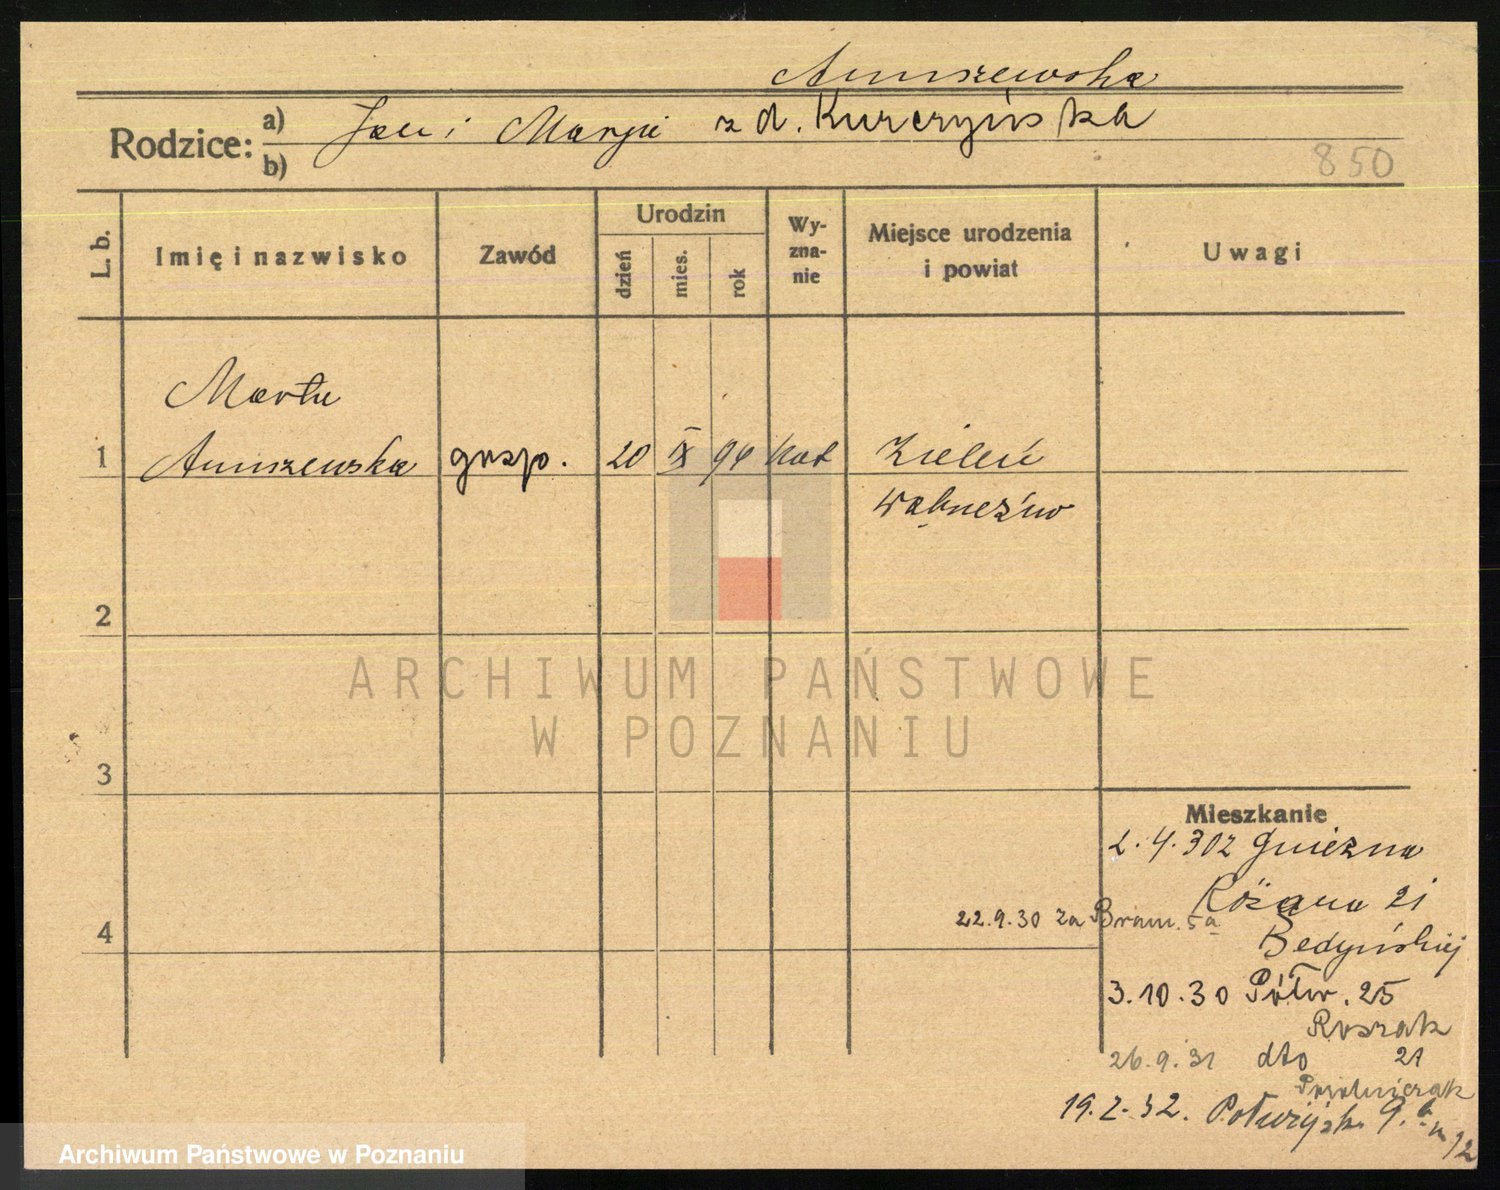 Anuszewska
Rodzice: a) Jan i Marja z d. Kurczyńska
b)
850
L. b.
Imię i nazwisko
Zawód
Urodzin
dzień
mies.
rok
Wy-
zna-
nie
Miejsce urodzenia
i powiat
Uwagi
Marta
1 Anuszewska gosp. 20 IX 94 kat Zieleń
Wąbrzeźno
2
ARCHIWUM PAŃSTWOWE
W POZNANIU
3
Mieszkanie
2.4.30 z Gniezna
Różana 21
4
22.9.30 za Bram. 5a
Bedyńskiej
3.10.30 Półw. 25
Roszak
26.9.31 dto 21
19.2.32. Półwiejsk. 9. m 12
Archiwum Państwowe w Poznaniu